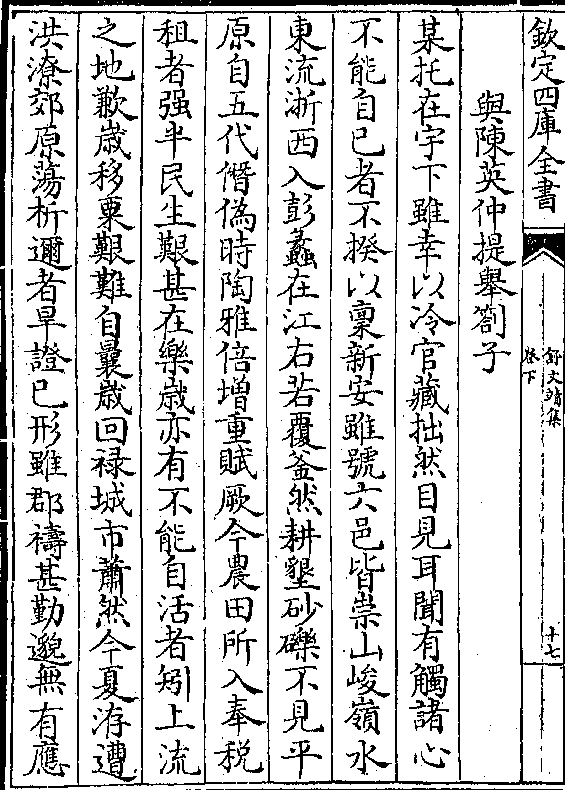 欽定四庫全書
舒文靖集
卷下
十七
與陳英仲提舉劄子
某托在宇下雖幸以冷官藏拙然目見耳聞有觸諸心
不能自已者不揆以稟新安雖號六邑皆崇山峻嶺水
東流浙西入彭蠡在江右若覆釜然耕墾砂礫不見平
原自五代僭偽時陶雅倍增重賦厥今農田所入奉稅
租者强半民生艱甚在樂歳亦有不能自活者矧上流
之地歉歳移粟艱難自曩歳回禄城市蕭然今夏洊遭
洪潦郊原蕩析邇者旱證已形雖郡禱甚勤邈無有應